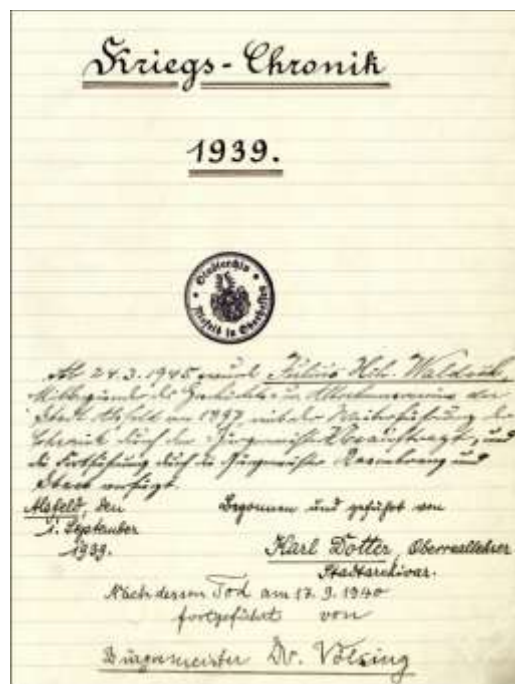 Kriegs-Chronik
1939.
Stadtarchiv
Alsfeld in Oberhessen
Ab 24.3.1945 wurde Julius Hch. Waldeck,
Mitbegründer des Geschichts- u. Altertumsvereins der
Stadt Alsfeld in 1897 mit der Weiterführung der
Chronik durch den Bürgermeister beauftragt, und
die Fortführung durch die Bürgermeister und
verfügt.
Alsfeld, den
1. September
1939.
Begonnen und geführt von
Karl Dotter, Oberreallehrer
Stadtarchivar.
Nach dessen Tod am 17.9.1940
fortgeführt von
Bürgermeister Dr. Völsing